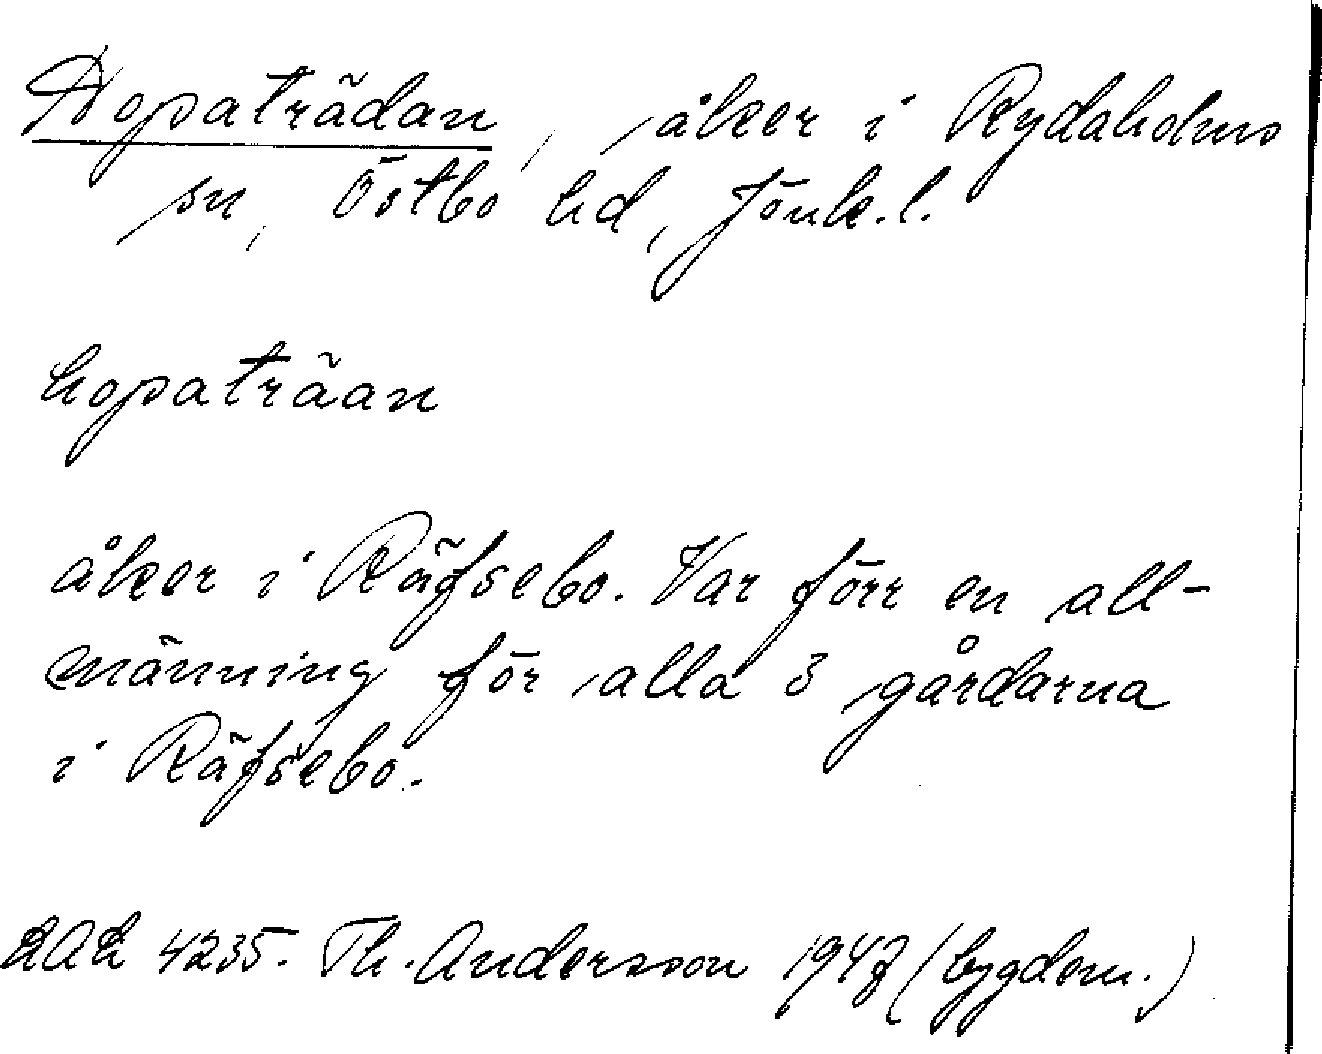 Hopaträdan, åker i Rydaholms
sn, Östbo hd, Jönk. l.
hopaträan
åker i Räfsebo. Var förr en all-
männing för alla 3 gårdarna
i Räfsebo.
4235. Th. Andersson 1947 (bygdem.)